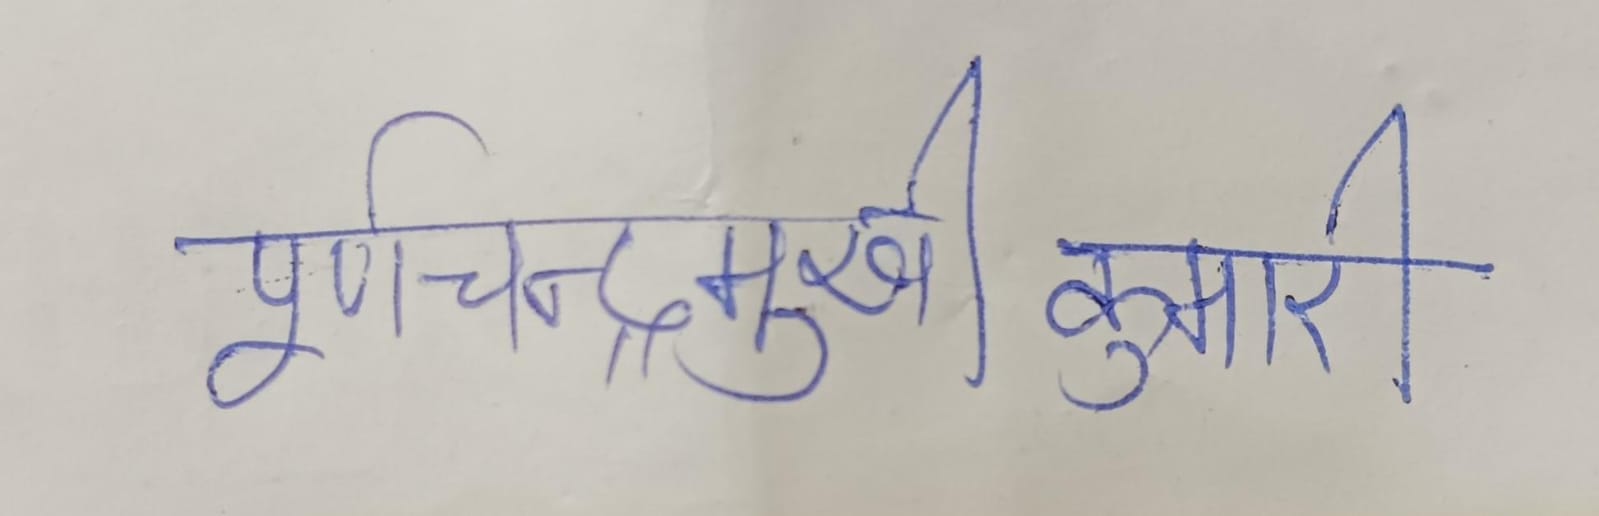 पूर्णचन्द्रमुखी कुमारी